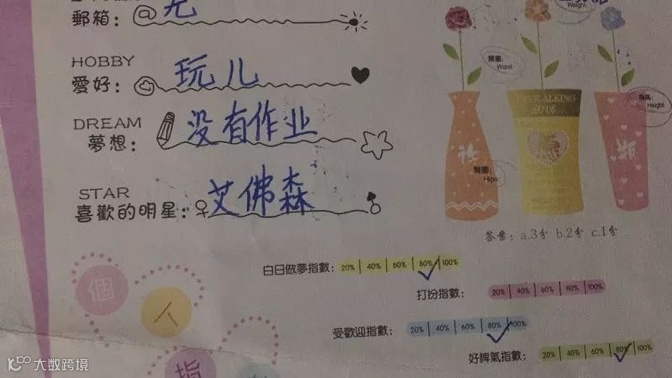 郵箱: @ 无
HOBBY
愛好: 玩儿
DREAM
夢想: 没有作业
STAR
喜歡的明星: 艾佛森
Weight
腰圍: Waist
身高: Height
臀圍: Hips
答案: a.3分 b.2分 c.1分
白日做夢指數: 20% 40% 60% 80% 100%
打扮指數: 20% 40% 60% 80% 100%
受歡迎指數: 20% 40% 60% 80% 100%
好脾氣指數: 20% 40% 60% 80% 100%
個
人
指
大数跨境